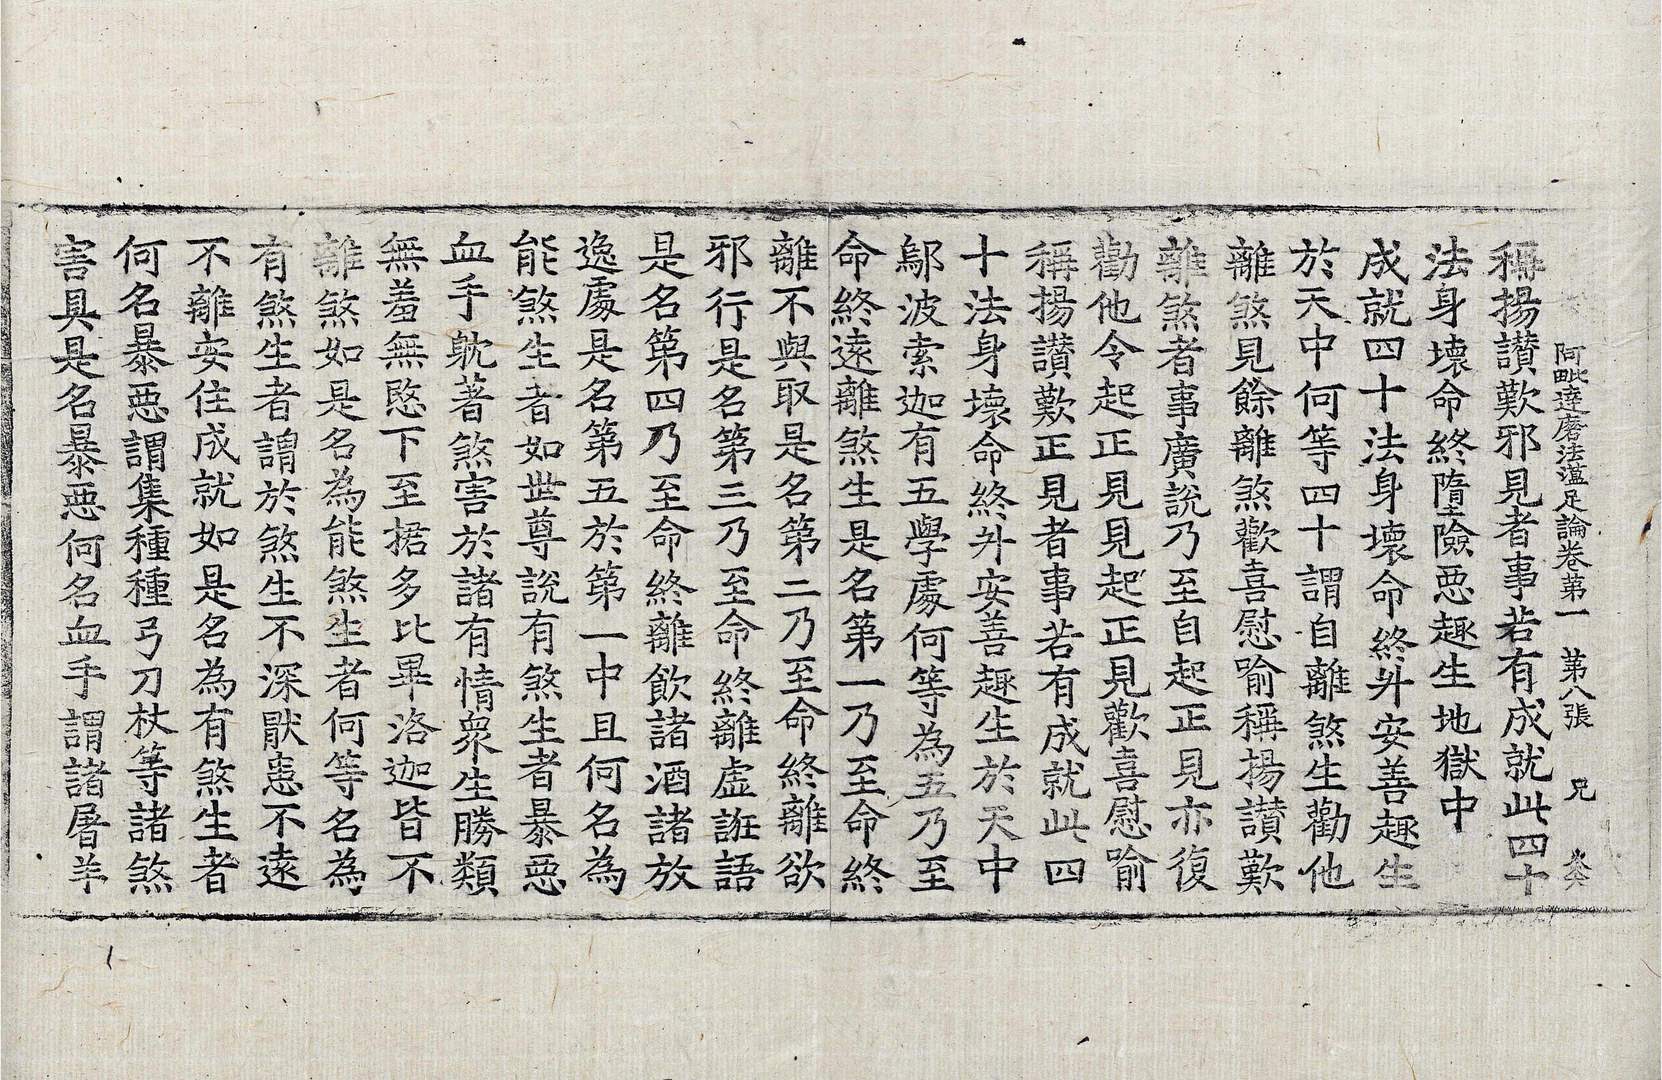 阿毗達磨法蘊足論卷第一　第八張　兄
稱揚讃歎邪見者事若有成就此四十
法身壞命終墮險惡趣生地獄中
成就四十法身壞命終升安善趣生
於天中何等四十謂自離煞生勸他
離煞見餘離煞歡喜慰喻稱揚讃歎
離煞者事廣說乃至自起正見亦復
勸他令起正見見起正見歡喜慰喻
稱揚讃歎正見者事若有成就此四
十法身壞命終升安善趣生於天中
鄔波索迦有五學處何等為五乃至
命終遠離煞生是名第一乃至命終
離不與取是名第二乃至命終離欲
邪行是名第三乃至命終離虛誑語
是名第四乃至命終離飲諸酒諸放
逸處是名第五於第一中且何名為
能煞生者如世尊說有煞生者暴惡
血手躭著煞害於諸有情衆生勝類
無羞無愍下至捃多比畢洛迦皆不
離煞如是名為能煞生者何等名為
有煞生者謂於煞生不深猒患不遠
不離安住成就如是名為有煞生者
何名暴惡謂集種種弓刀杖等諸煞
害具是名暴惡何名血手謂諸屠羊